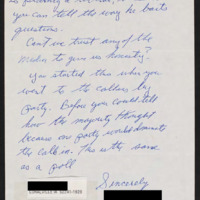 is personally a
you can tell the way he baits
questions.
Can't we trust any of the
media to give us honesty?
You started this when you
went to the callers by
party. Before you could tell
how the majority thought
because one party would dominate
the call in. This is the same
as a poll
Sincerely